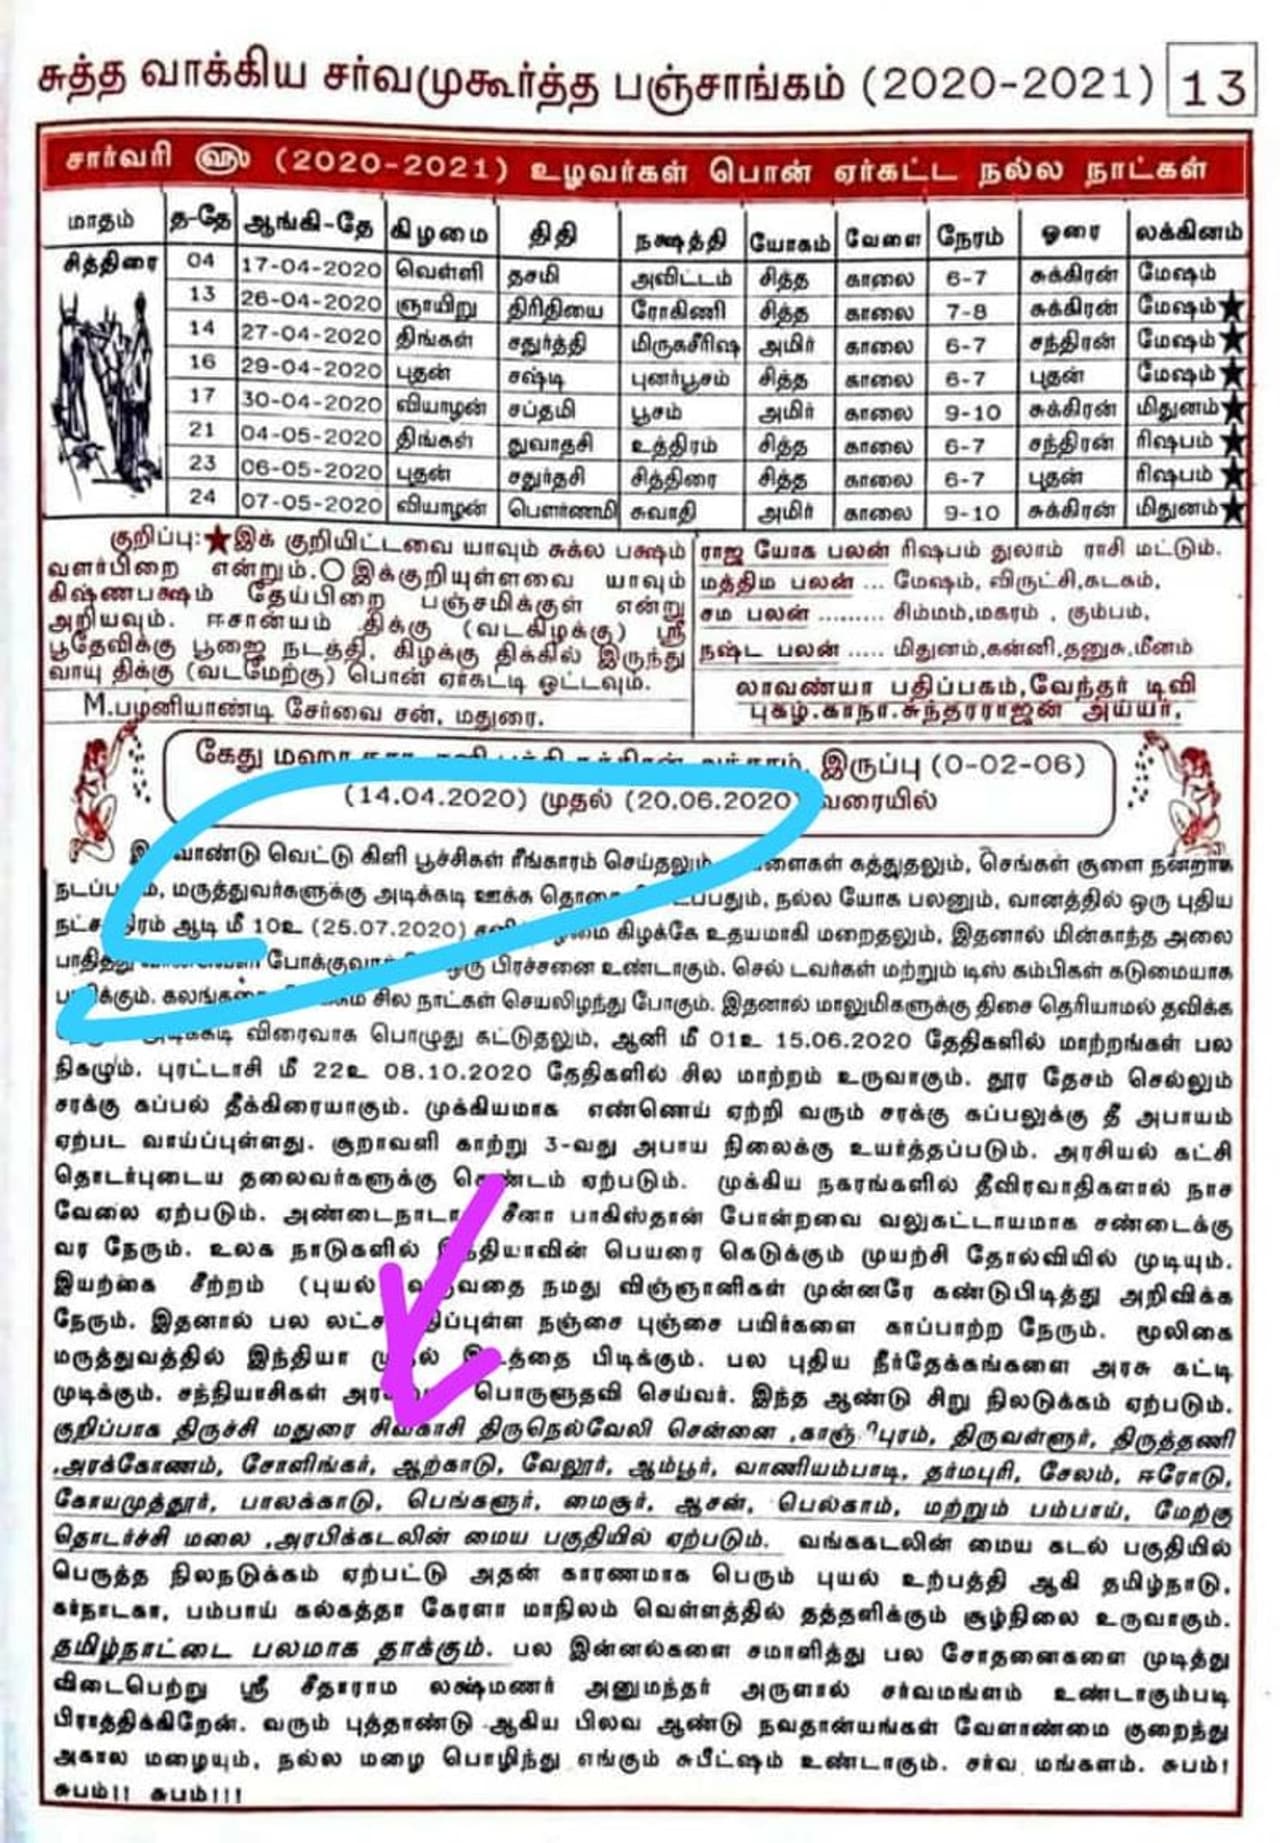 சுத்த வாக்கிய சர்வமுகூர்த்த பஞ்சாங்கம் (2020-2021) 13
சார்வரி ௵ (2020-2021) உழவர்கள் பொன் ஏர்கட்ட நல்ல நாட்கள்
மாதம் த-தே ஆங்கி-தே கிழமை திதி நக்ஷத்தி யோகம் வேளை நேரம் ஓரை லக்கினம்
சித்திரை 04 17-04-2020 வெள்ளி தசமி அவிட்டம் சித்த காலை 6-7 சுக்கிரன் மேஷம்
13 26-04-2020 ஞாயிறு திரிதியை ரோகிணி சித்த காலை 7-8 சுக்கிரன் மேஷம்★
14 27-04-2020 திங்கள் சதுர்த்தி மிருகசீரிஷ அமிர் காலை 6-7 சந்திரன் மேஷம்★
16 29-04-2020 புதன் சஷ்டி புனர்பூசம் சித்த காலை 6-7 புதன் மேஷம்★
17 30-04-2020 வியாழன் சப்தமி பூசம் அமிர் காலை 9-10 சுக்கிரன் மிதுனம்★
21 04-05-2020 திங்கள் துவாதசி உத்திரம் சித்த காலை 6-7 சந்திரன் ரிஷபம்★
23 06-05-2020 புதன் சதுர்தசி சித்திரை சித்த காலை 6-7 புதன் ரிஷபம்★
24 07-05-2020 வியாழன் பௌர்ணமி சுவாதி அமிர் காலை 9-10 சுக்கிரன் மிதுனம்★
குறிப்பு:★இக் குறியிட்டவை யாவும் சுக்ல பக்ஷம்
வளர்பிறை என்றும்.○இக்குறியுள்ளவை யாவும்
கிஷ்ணபக்ஷம் தேய்பிறை பஞ்சமிக்குள் என்று
அறியவும். ஈசான்யம் திக்கு (வடகிழக்கு) ஸ்ரீ
பூதேவிக்கு பூஜை நடத்தி, கிழக்கு திக்கில் இருந்து
வாயு திக்கு (வடமேற்கு) பொன் ஏர்கட்டி ஓட்டவும்.
M.பழனியாண்டி சேர்வை சன், மதுரை.
ராஜ யோக பலன் ரிஷபம் துலாம் ராசி மட்டும்.
மத்திம பலன் ... மேஷம், விருட்சி,கடகம்,
சம பலன் ......... சிம்மம்,மகரம் , கும்பம்,
நஷ்ட பலன் ..... மிதுனம்,கன்னி,தனுசு,மீனம்
லாவண்யா பதிப்பகம்,வேந்தர் டிவி
புகழ்.காநா.சுந்தரராஜன் அய்யர்,
கேது மஹா இருப்பு (0-02-06)
(14.04.2020) முதல் (20.06.2020) வரையில்
வெட்டு கிளி பூச்சிகள் ரீங்காரம் செய்தலும் கத்துதலும், செங்கள் சூளை நன்றாக
மருத்துவர்களுக்கு அடிக்கடி ஊக்க நல்ல யோக பலனும், வானத்தில் ஒரு புதிய
ஆடி மீ 10உ (25.07.2020) கிழக்கே உதயமாகி மறைதலும், இதனால் மின்காந்த அலை
பிரச்சனை உண்டாகும். செல் டவர்கள் மற்றும் டிஸ் கம்பிகள் கடுமையாக
சில நாட்கள் செயலிழந்து போகும். இதனால் மாலுமிகளுக்கு திசை தெரியாமல் தவிக்க
விரைவாக பொழுது கட்டுதலும், ஆனி மீ 01உ 15.06.2020 தேதிகளில் மாற்றங்கள் பல
நிகழும். புரட்டாசி மீ 22உ 08.10.2020 தேதிகளில் சில மாற்றம் உருவாகும். தூர தேசம் செல்லும்
சரக்கு கப்பல் தீக்கிரையாகும். முக்கியமாக எண்ணெய் ஏற்றி வரும் சரக்கு கப்பலுக்கு தீ அபாயம்
ஏற்பட வாய்ப்புள்ளது. சூறாவளி காற்று 3-வது அபாய நிலைக்கு உயர்த்தப்படும். அரசியல் கட்சி
தொடர்புடைய தலைவர்களுக்கு கெண்டம் ஏற்படும். முக்கிய நகரங்களில் தீவிரவாதிகளால் நாச
வேலை ஏற்படும். சீனா பாகிஸ்தான் போன்றவை வலுகட்டாயமாக சண்டைக்கு
வர நேரும். உலக நாடுகளில் இந்தியாவின் பெயரை கெடுக்கும் முயற்சி தோல்வியில் முடியும்.
இயற்கை சீற்றம் (புயல்) வருவதை நமது விஞ்ஞானிகள் முன்னரே கண்டுபிடித்து அறிவிக்க
நேரும். இதனால் பல லட்ச மதிப்புள்ள நஞ்சை புஞ்சை பயிர்களை காப்பாற்ற நேரும். மூலிகை
மருத்துவத்தில் இந்தியா முதல் இடத்தை பிடிக்கும். பல புதிய நீர்தேக்கங்களை அரசு கட்டி
முடிக்கும். சந்நியாசிகள் பொருளுதவி செய்வர். இந்த ஆண்டு சிறு நிலடுக்கம் ஏற்படும்.
குறிப்பாக திருச்சி மதுரை சிவகாசி திருநெல்வேலி சென்னை ,காஞ்சிபுரம், திருவள்ளூர், திருத்தணி
,அரக்கோணம், சோளிங்கர், ஆற்காடு, வேலூர், ஆம்பூர், வாணியம்பாடி, தர்மபுரி, சேலம், ஈரோடு,
கோயமுத்தூர், பாலக்காடு, பெங்களூர், மைசூர், ஆசன், பெல்காம், மற்றும் பம்பாய், மேற்கு
தொடர்ச்சி மலை ,அரபிக்கடலின் மைய பகுதியில் ஏற்படும். வங்ககடலின் மைய கடல் பகுதியில்
பெருத்த நிலநடுக்கம் ஏற்பட்டு அதன் காரணமாக பெரும் புயல் உற்பத்தி ஆகி தமிழ்நாடு,
கர்நாடகா, பம்பாய் கல்கத்தா கேரளா மாநிலம் வெள்ளத்தில் தத்தளிக்கும் சூழ்நிலை உருவாகும்.
தமிழ்நாட்டை பலமாக தாக்கும். பல இன்னல்களை சமாளித்து பல சோதனைகளை முடித்து
விடைபெற்று ஸ்ரீ சீதாராம லக்ஷ்மணர் அனுமந்தர் அருளால் சர்வமங்ளம் உண்டாகும்படி
பிராத்திக்கிறேன். வரும் புத்தாண்டு ஆகிய பிலவ ஆண்டு நவதான்யங்கள் வேளாண்மை குறைந்து
அகால மழையும், நல்ல மழை பொழிந்து எங்கும் சுபீட்ஷம் உண்டாகும். சர்வ மங்களம். சுபம்!
சுபம்!! சுபம்!!!